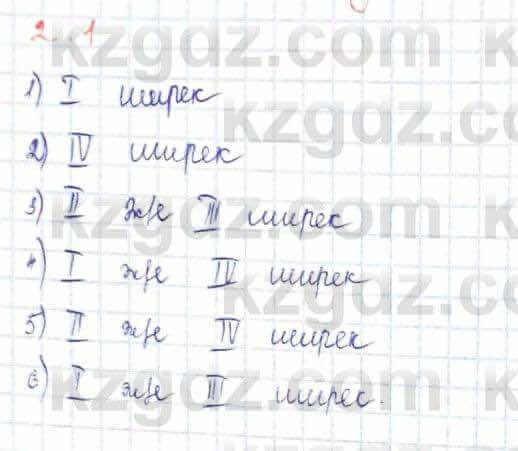 2.1
1) I ширек
2) IV ширек
3) II ж/е III ширек
4) I ж/е IV ширек
5) II ж/е IV ширек
6) I ж/е III ширек.
kzgdz.com